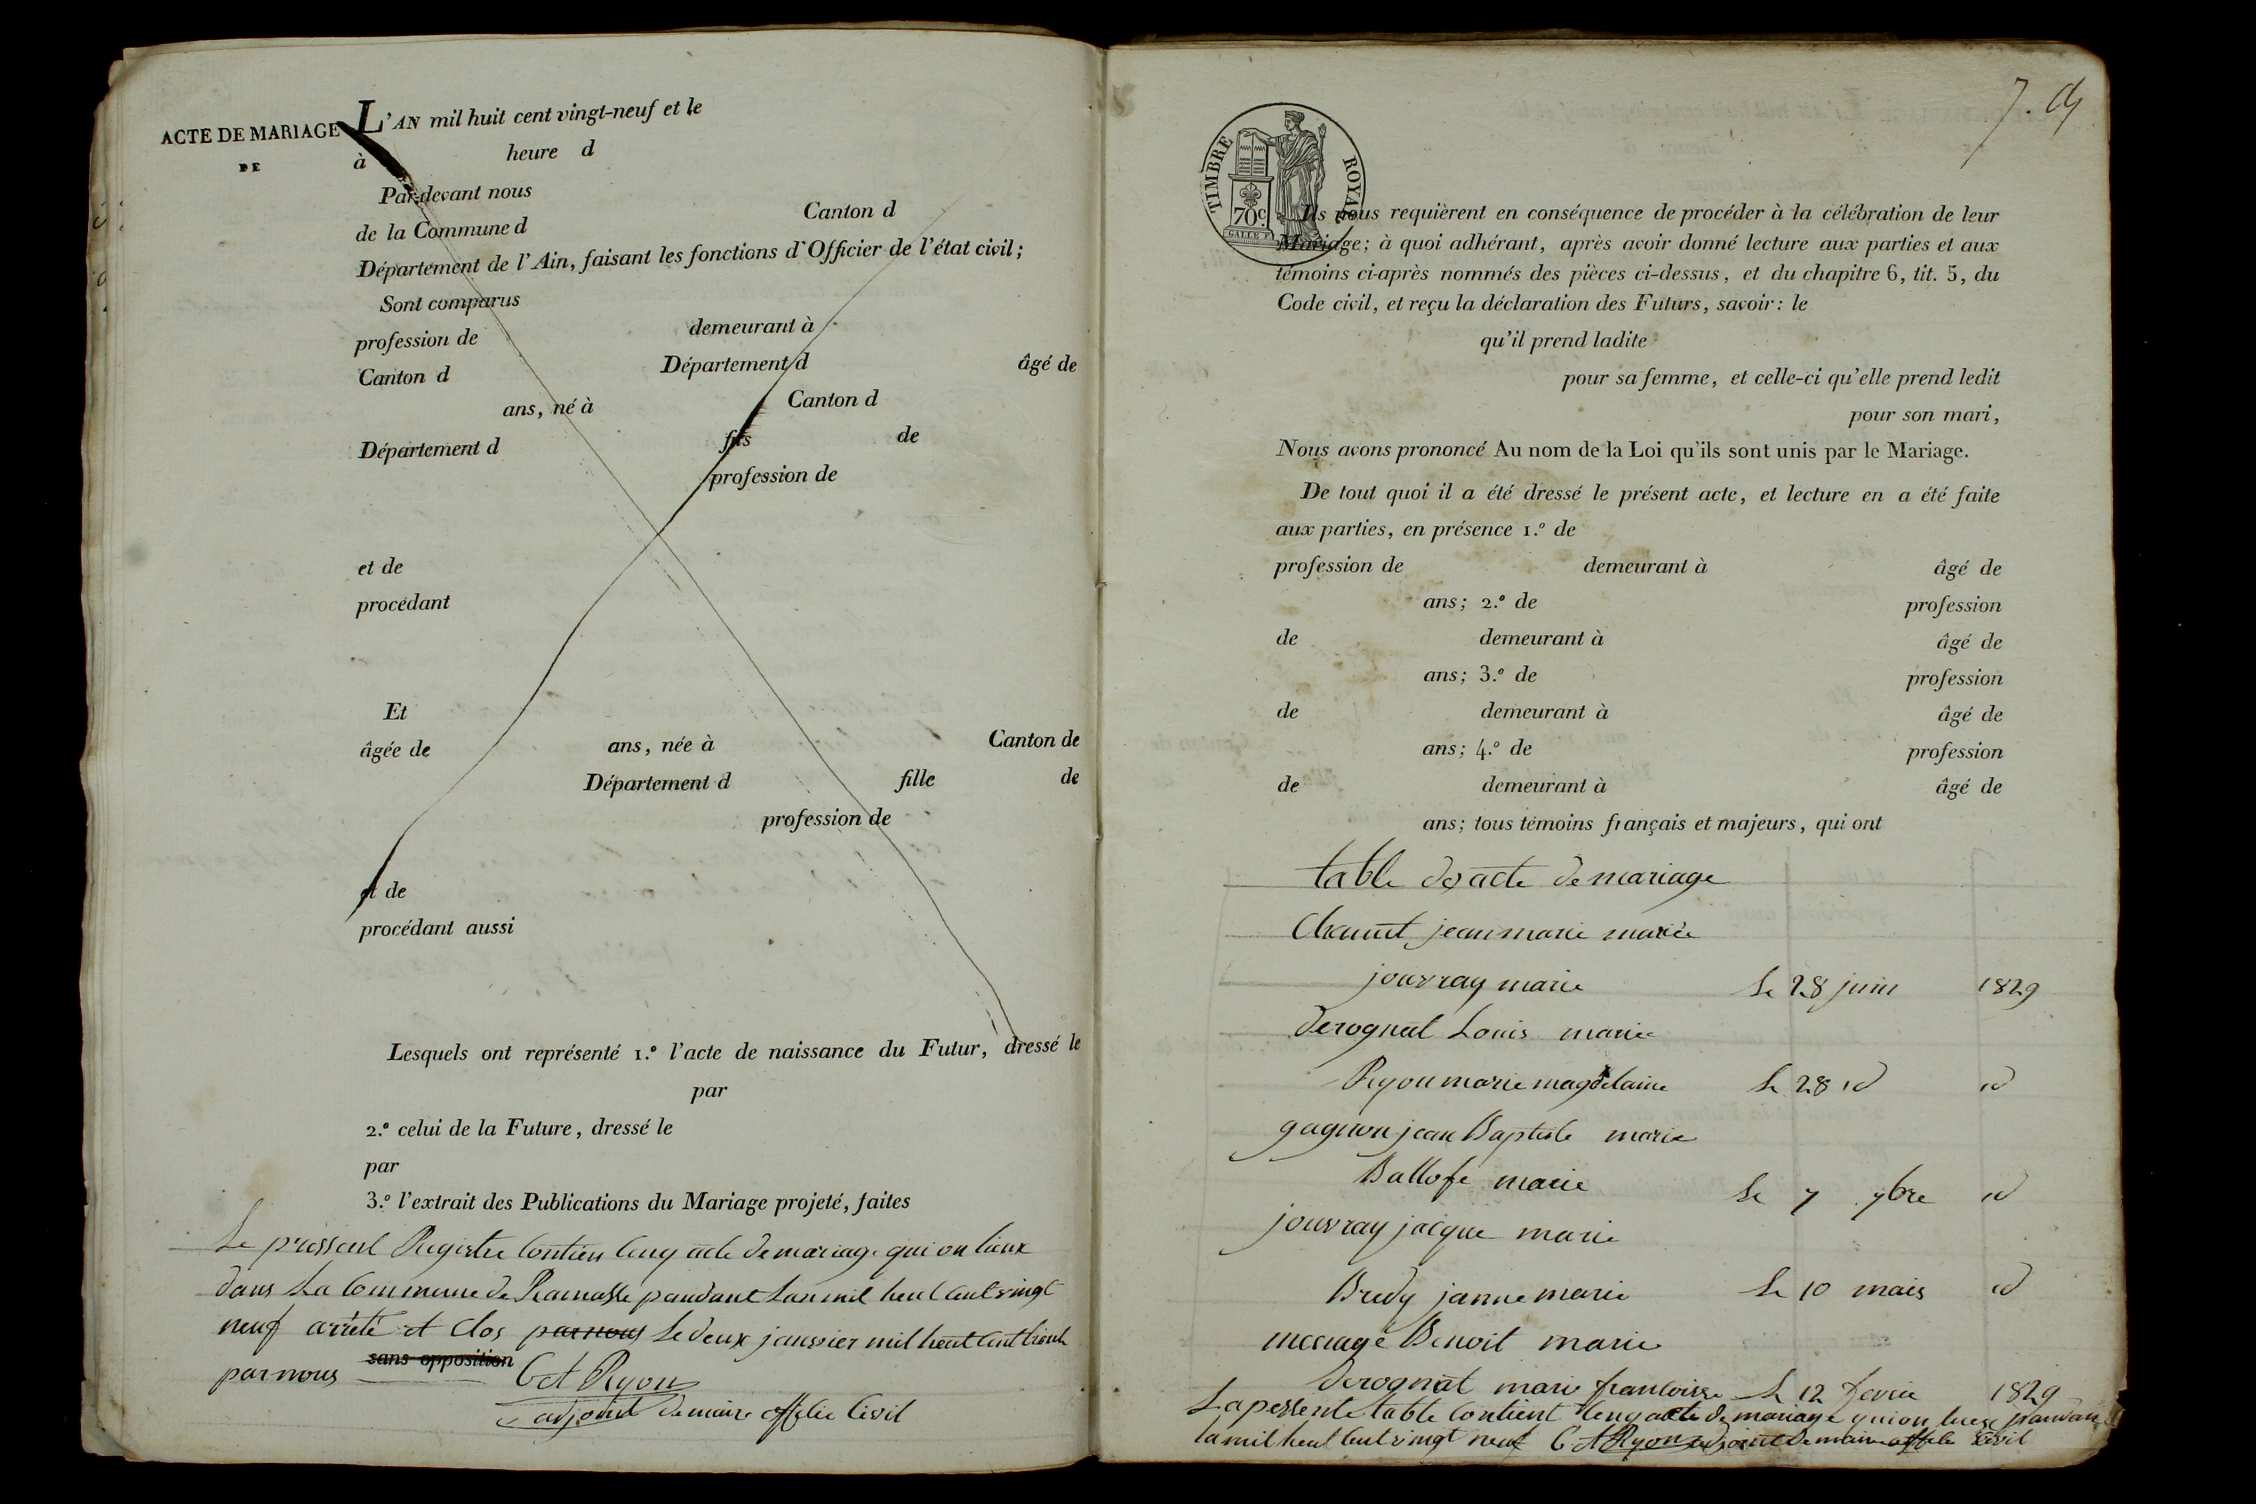 ACTE DE MARIAGE
DE
L'AN mil huit cent vingt-neuf et le
à heure d
Par-devant nous
de la Commune d Canton d
Département de l'Ain, faisant les fonctions d'Officier de l'état civil;
Sont comparus
profession de demeurant à
Canton d Département d âgé de
ans, né à Canton d
Département d fils de
profession de
et de
procédant
Et
âgée de ans, née à Canton de
Département d fille de
profession de
et de
procédant aussi
Lesquels ont représenté 1.º l'acte de naissance du Futur, dressé le
par
2.º celui de la Future, dressé le
par
3.º l'extrait des Publications du Mariage projeté, faites
Le pressent Registre contien cenq acte de mariage qui on lieux
dans la commune de Ramasse pandant Lan mil heut cent vingt
neuf arrêté et clos par nous le deux janvier mil heut cent trente
par nous sans opposition C A Ryon
adjoint de maire civil
7.
TIMBRE ROYAL
70c.
Ils nous requièrent en conséquence de procéder à la célébration de leur
Mariage; à quoi adhérant, après avoir donné lecture aux parties et aux
témoins ci-après nommés des pièces ci-dessus, et du chapitre 6, tit. 5, du
Code civil, et reçu la déclaration des Futurs, savoir: le
qu'il prend ladite
pour sa femme, et celle-ci qu'elle prend ledit
pour son mari,
Nous avons prononcé Au nom de la Loi qu'ils sont unis par le Mariage.
De tout quoi il a été dressé le présent acte, et lecture en a été faite
aux parties, en présence 1.º de
profession de demeurant à âgé de
ans; 2.º de profession
de demeurant à âgé de
ans; 3.º de profession
de demeurant à âgé de
ans; 4.º de profession
de demeurant à âgé de
ans; tous témoins français et majeurs, qui ont
table des acte de mariage
Chanut jean marie mariée
jouvray marie Le 28 juin 1829
derognat Louis marie
Ryon marie magdelaine Le 28 id id
gagnon jean Baptiste marie
Ballofe marie Le 7 7bre id
jouvray jacque marie
Bredy janne marie Le 10 mais id
Benoit marie
derognat marie francoisse Le 12 1829
La pessente table contient cenq acte de mariage qui on pandan
la mil heut cent vingt neuf C A Ryon adjoint de maire civil